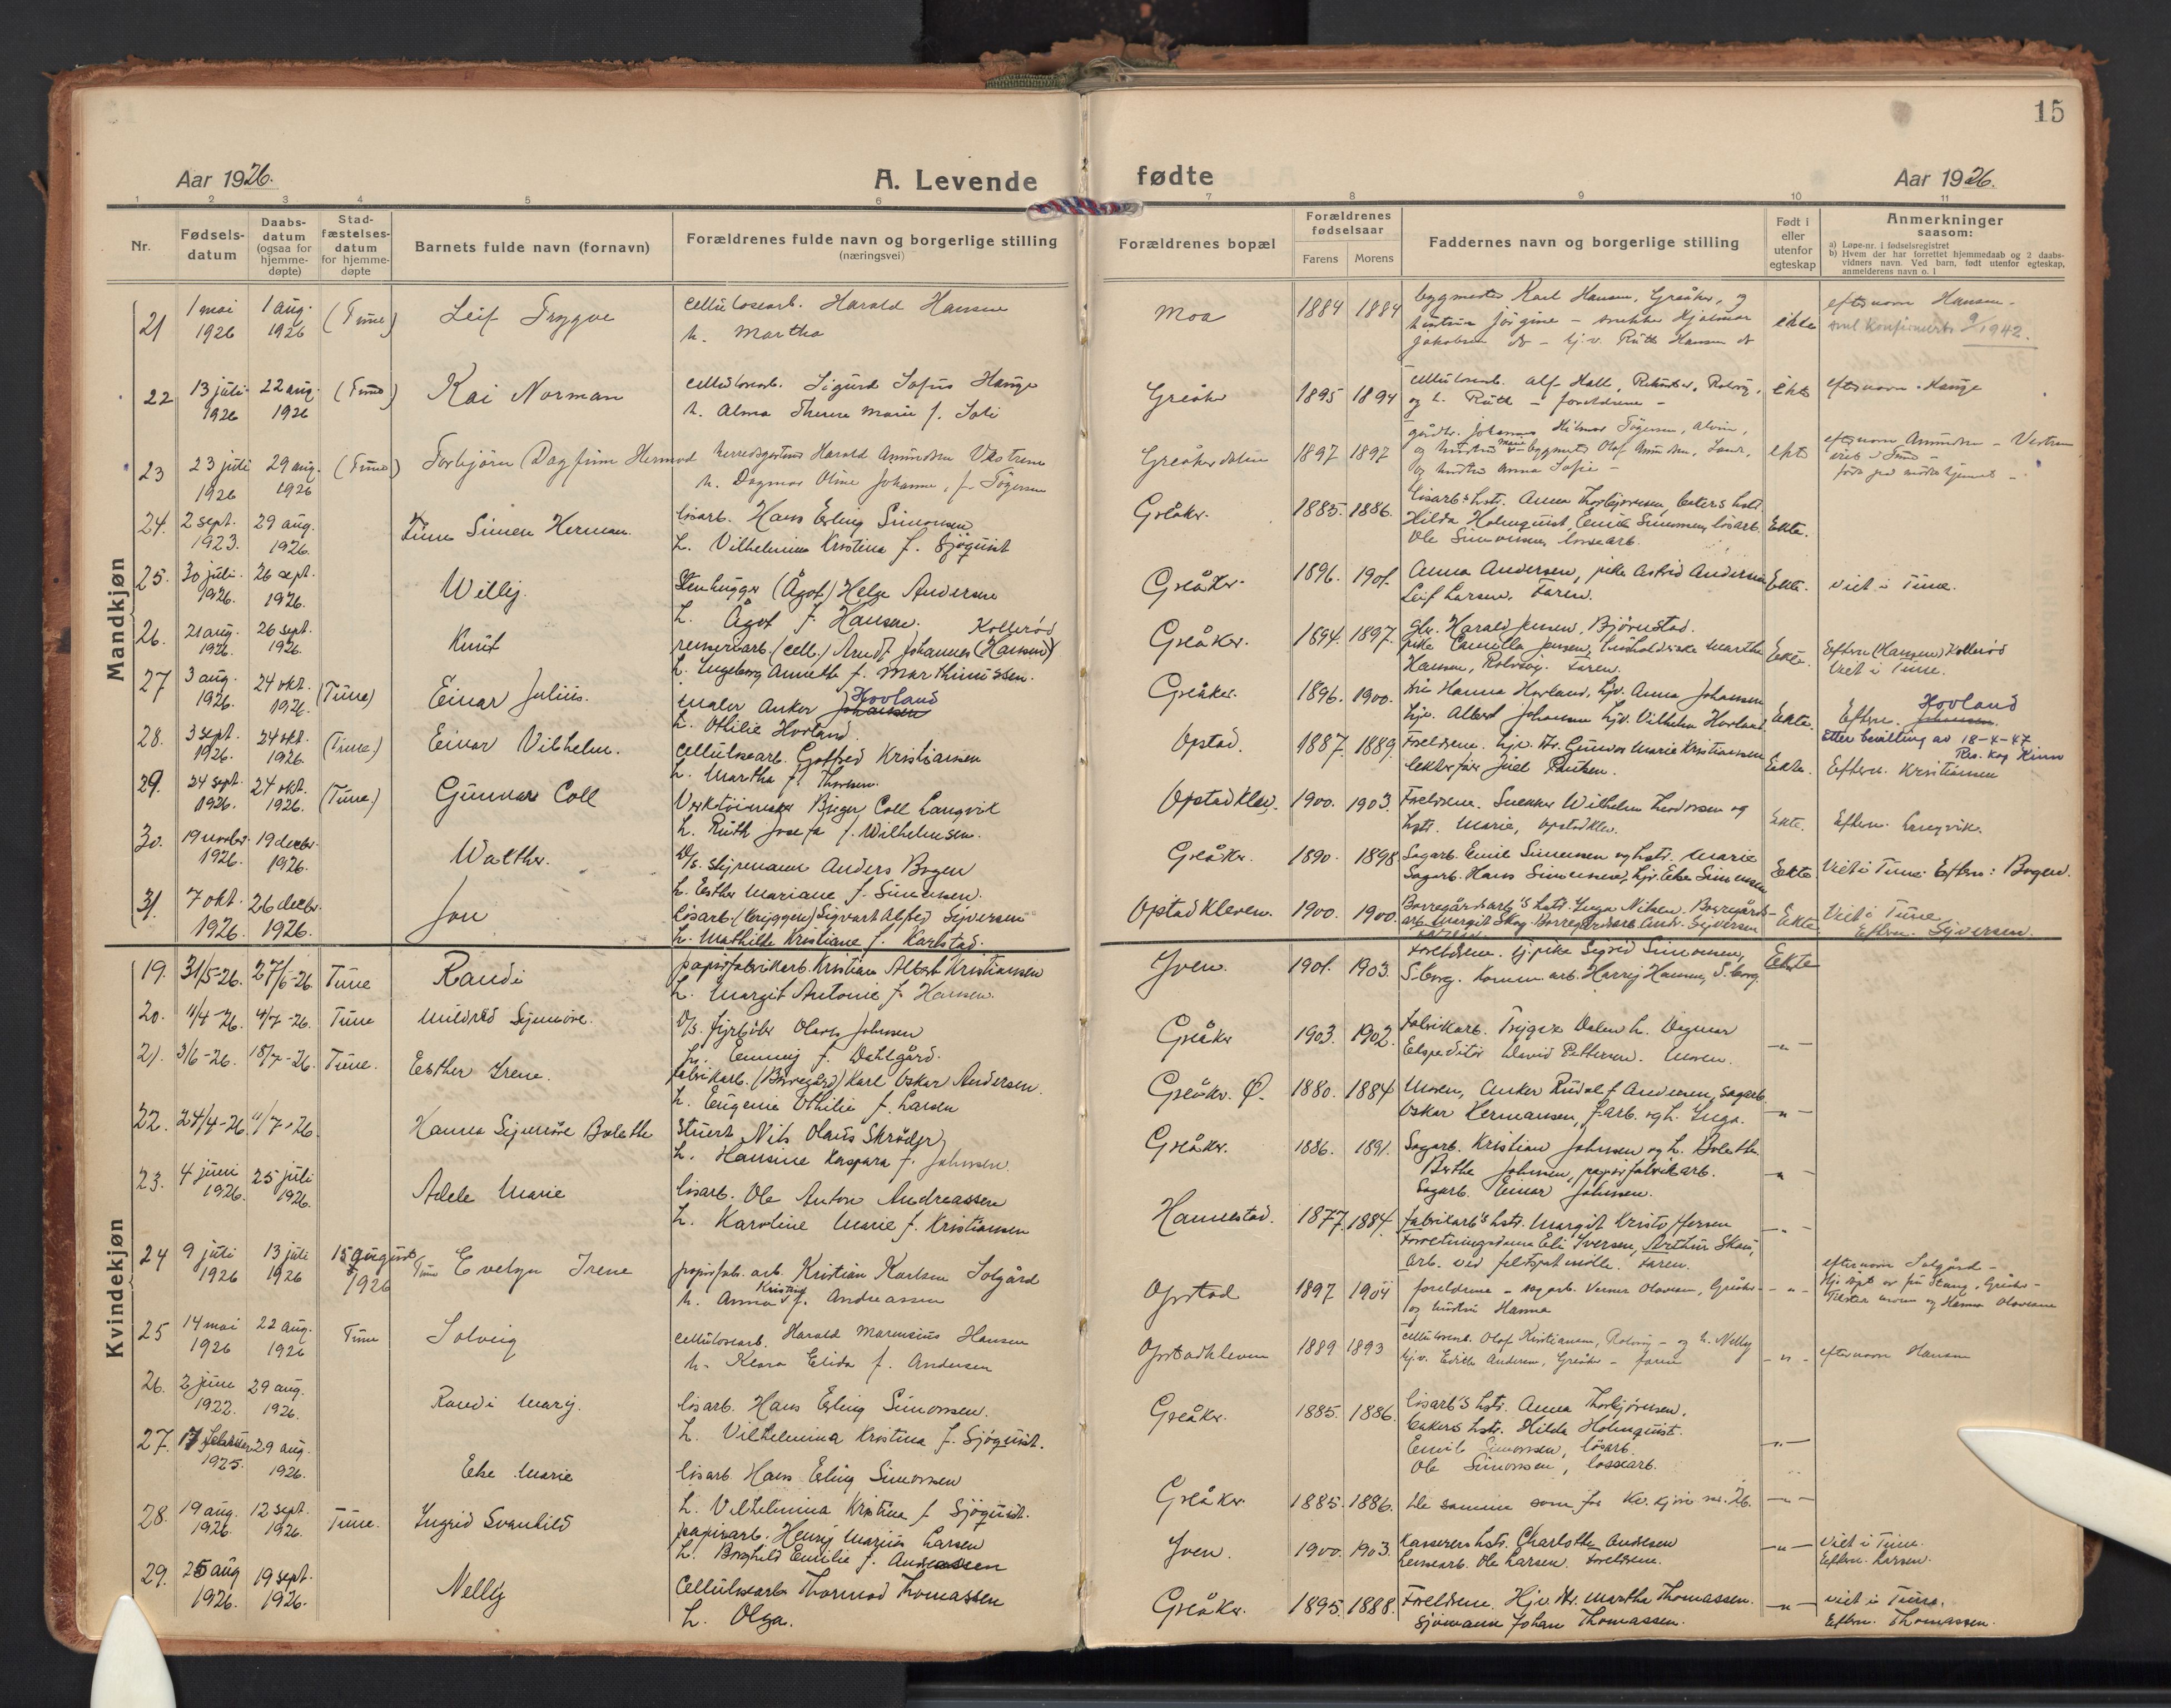 15
Aar 1926.
A. Levende fødte
Aar 1926.
1 2 3 4 5 6 7 8 9 10 11
Nr.
Fødsels-datum
Daabs-datum (ogsaa for hjemme-døpte)
Stad-fæstelses-datum for hjemme-døpte
Barnets fulde navn (fornavn)
Forældrenes fulde navn og borgerlige stilling
(næringsvei)
Forældrenes bopæl
Forældrenes fødselsaar
Farens Morens
Faddernes navn og borgerlige stilling
Født i eller utenfor egteskap
Anmerkninger
saasom:
a) Løpe-nr. i fødselsregistret
b) Hvem der har forrettet hjemmedaab og 2 daabs-
vidners navn. Ved barn, født utenfor egteskap,
anmelderens navn o. l
Mandkjøn
21 1 mai 1926 1 aug. 1926 (Tune) Leif Trygve
cellulosearb. Harald Hansen
h. Martha
Moa 1884 1884
bygmester Karl Hansen, Greåker, og
hustru Jørgine - snekker Hjalmar
Jakobsen do - hj.v. Ruth Hansen do
ekte
efternavn Hansen -
skal konfirmeres 9/1942.
22 13 juli 1926 22 aug. 1926 (Tune) Kai Norman
cellulosearb. Sigurd Sofus Hauge
h. Alma Therese Marie f. Soli
Greåker 1895 1894
cellulosearb. Alf Hall, Rolvsøy,
og h. Ruth - foreldrene -
ekte
efternavn Hauge
23 23 juli 1926 29 aug. 1926 (Tune) Torbjørn Dagfinn Hermod
herredsgartner Harald Amundsen Vestrem
h. Dagmar Oline Johanne, f. Tøgersen
Greåkerdalen 1897 1897
gårdbr. Johannes Hilmar Tøgersen, Alvim,
og hustru Marie - bygmester Olaf Amundsen,
og hustru Anna Sofie -
ekte
efternavn Amundsen - Vestrem
viet i Tune -
24. 2 sept. 1923. 29 aug. 1926. Simen Herman.
løsarb. Hans Erling Simonsen
h. Vilhelmina Kristina f. Sjøquist
Greåker. 1885. 1886.
løsarb's hstr. Anna Thorbjørnsen,
Hilda Holmquist, Emil Simonsen, løsarb.
Ole Simonsen, lossearb.
Ekte.
25. 30 juli. 1926. 26 sept. 1926. Willy.
Stenhugger (Ågot) Helge Andersen
h. Ågot f. Hansen.
Greåker. 1896. 1901.
Anna Andersen, pike Astrid Andersen
Leif Larsen. Faren.
Ekte.
viet i Tune.
26. 21 aug. 1926. 26 sept. 1926. Knut
Kollerød
renseriarb. (cell.) Arndt Johannes (Hansen)
h. Ingeborg Annette f. Marthinussen.
Greåker. 1894. 1897.
Gbr. Harald Jensen, Bjørnstad.
pike Camilla Jensen, husholderske Marthe
Hansen, Rolvsøy. Faren.
Ekte.
Eftern. (Hansen) Kollerød
Viet i Tune.
27 3 aug. 1926. 24 okt. 1926. (Tune) Einar Julius.
Hovland
maler Anker Johansen
h. Othilie Hovland.
Greåker. 1896. 1900.
Hanna Hovland, hjv. Anna Johansen
hjv. Albert Johansen hjv. Vilhelm Hovland
Ekte.
Hovland
Eftern. Johansen.
Etter bevilling av 18-4-47
Res. Kap. Kinn
28. 3 sept. 1926. 24 okt. 1926 (Tune.) Einar Vilhelm.
cellulosearb. Gotfred Kristiansen
h. Martha f. Thorsen.
Opstad. 1887. 1889.
Foreldrene. hjv. Gunvor Marie Kristiansen
Juel Paulsen.
Ekte.
Eftern. Kristiansen
29. 24 sept. 1926. 24 okt. 1926. (Tune.) Gunnar Coll
Verktøimaker Birger Coll Langvik
h. Ruth Josefa f. Wilhelmsen.
Opstadklev. 1900. 1903.
Foreldrene. Snekker Wilhelm Thorvaldsen og
hstr. Marie, Opstadklev.
Ekte.
Eftern. Langvik.
30. 19 novbr. 1926. 19 decbr. 1926. Walther.
D/s. styrmann Anders Bogen
h. Esther Mariane f. Simensen.
Greåker. 1890. 1898
Sagarb. Emil Simensen og hstr. Marie
Sagarb. Hans Simensen, hjv. Else Simensen
Ekte.
Viet i Tune. Eftern: Bogen.
31. 7 okt. 1926. 26 decbr. 1926. Jon
løsarb. (bryggen) Sigvart Alfred Syversen
h. Mathilde Kristiane f. Karlstad.
Opstadkleven. 1900. 1900.
Borregårdsarb's hstr. Inga Nilsen. Borregårds-
arb. Margit Skog. Borregårdsarb. Andr. Syversen
Ekte.
Viet i Tune
Eftern. Syversen.
Kvindekjøn
19. 31/5-26. 27/6-26. Tune Randi
papirfabrikarb. Kristian Albert Kristiansen
h. Margit Antonie f. Hansen.
Yven. 1901. 1903.
Foreldrene. hj.pike Sigrid Simonsen,
S.borg. Komm. arb. Harry Hansen, S.borg.
Ekte
20. 11/4-26. 4/7-26. Tune Mildred Synnøve.
D/s. fyrbøter Olaves Johnsen
h. Emmy f. Dahlgård.
Greåker 1903. 1902.
Fabrikarb. Trygve Dalen h. Dagmar
Ekspeditør David Pettersen. Moren.
-"-
21. 3/6-26. 18/7-26. Tune. Esther Irene.
Fabrikarb. (Borregård) Karl Oskar Andersen
h. Eugenie Othilie f. Larsen
Greåker. Ø. 1880. 1884
Moren, Anker Rudolf Andersen, sagarb.
Oskar Hermansen, f.arb. og h. Inga.
-"-
22. 24/4-26. 11/7-26. Hanna Synnøve Bolette
Stuert Nils Olaus Skrøder
h. Hansine Kaspara f. Johnsen.
Greåker. 1886. 1891.
Sagarb. Kristian Johnsen og h. Bolette
Berthe Johnsen, papirfabrikarb.
Sagarb. Einar Johnsen.
-"-
23. 4 juni 1926. 25 juli 1926. Adele Marie
løsarb. Ole Anton Andreassen
h. Karoline Marie f. Kristiansen
Hannestad. 1877 1884.
fabrikarb's hstr. Margit Kristoffersen
Forretningsdame Eli Iversen, Arthur Skau,
arb. ved feltspatmølle. Faren.
-"-
24 9 juli 1926 13 juli 1926 15 august 1926 Tune Evelyn Irene
papirfab. arb. Kristian Karlsen Solgård
h. Anna Kristine f. Andreassen
Opstad 1897 1904
foreldrene - sagarb. Verner Olavesen, Greåker -
og hustru Hanna
-"-
efternavn Solgård -
Hj. døpt av fru Stang, Greåker -
moren og Hanna Olavesen
25 14 mai 1926 22 aug. 1926 Tune Solveig
cellulosearb. Harald Marensius Hansen
h. Klara Elida f. Andersen
Opstadkleven 1889 1893
cellulosearb. Olaf Kristiansen, Rolvsøy - og h. Nelly
hj.v. Edith Andersen, Greåker - faren
-"-
efternavn Hansen
26. 2 juni 1922. 29 aug. 1926. Randi Mary.
løsarb. Hans Erling Simonsen.
h. Vilhelmina Kristina f. Sjøquist.
Greåker. 1885. 1886.
løsarb's hstr. Anna Thorbjørnsen.
hstr. Hilda Holmquist.
Emil Simonsen, løsarb.
Ole Simonsen, lossearb.
-"-
27. 17 februar 1925. 29 aug. 1926. Else Marie
løsarb. Hans Erling Simonsen
h. Vilhelmina Kristina f. Sjøquist.
Greåker. 1885. 1886.
De samme som for Kv. kjøn nr. 26.
-"-
28. 19 aug. 1926. 12 sept. 1926. Tune. Ingrid Svanhild
papirarb. Henry Marius Larsen
h. Borghild Emilie f. Andreassen
Yven. 1900. 1903.
Kasserers hstr. Charlotte Andersen
Lensearb. Ole Larsen. Foreldrene.
-"-
Viet i Tune.
Eftern. Larsen.
29. 25 aug 1926. 19 sept. 1926. Nelly
Cellulosearb. Thormod Thomassen
h. Olga.
Greåker. 1895. 1888.
Foreldrene. Hjv. Martha Thomassen.
Sjømann Johan Thomassen.
-"-
viet i Tune.
Eftern. Thomassen.